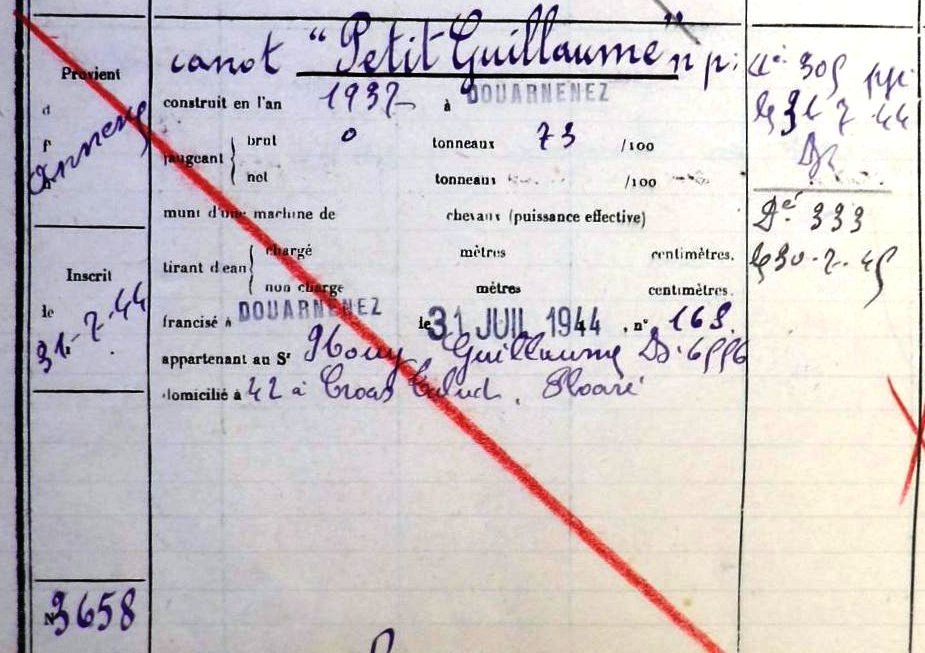 canot "Petit Guillaume" n p:
Provient
d
construit en l'an 1937 à DOUARNENEZ
jaugeant
brut 0 tonneaux 73 /100
net tonneaux /100
muni d'une machine de chevaux (puissance effective)
tirant d'eau
chargé mètres centimètres.
non chargé mètres centimètres.
francisé à DOUARNENEZ le 31 JUIL 1944, n° 163.
appartenant au Sr Guillaume
domicilié à 42 à Ploaré
Inscrit
le
31-7-44
N° 3658
305
31 7 44
333
30-7-45